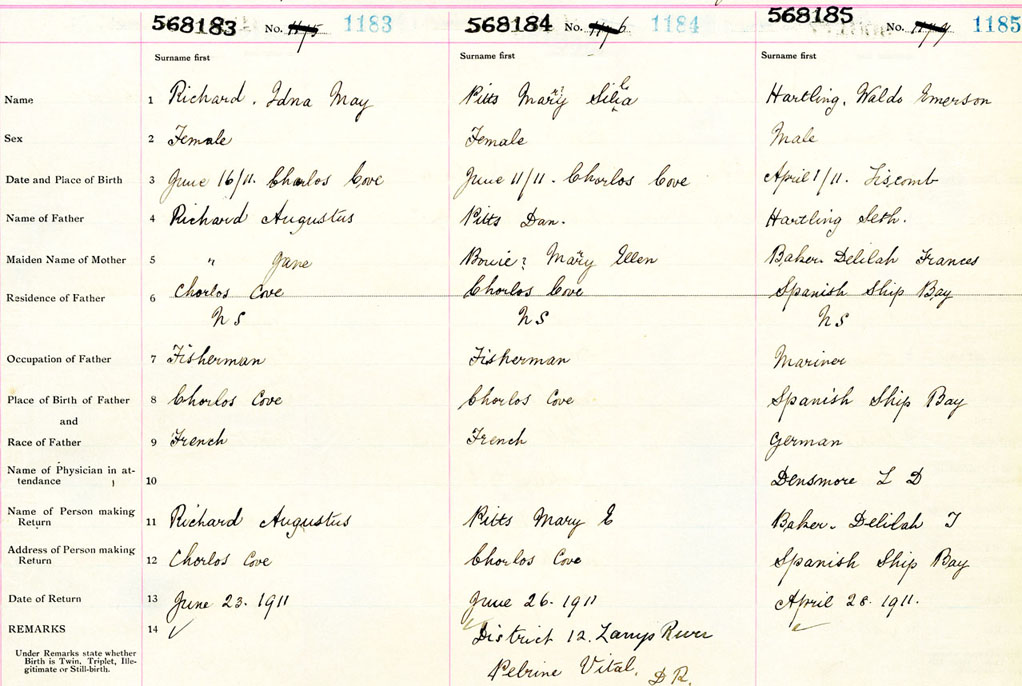 568183 No. 1175 1183 568184 No. 1176 1184 568185 No. 1185
Surname first Surname first Surname first
Name 1 Richard, Idna May Pitts Mary Silia Hartling, Waldo Emerson
Sex 2 Female Female Male
Date and Place of Birth 3 June 16/11. Charlos Cove June 11/11. Charlos Cove April 1/11. Liscomb
Name of Father 4 Richard Augustus Pitts Dan. Hartling Seth.
Maiden Name of Mother 5 " Jane Bowie? Mary Ellen Baker. Delilah Frances
Residence of Father 6 Charlos Cove Charlos Cove Spanish Ship Bay
NS NS NS
Occupation of Father 7 Fisherman Fisherman Mariner
Place of Birth of Father 8 Charlos Cove Charlos Cove Spanish Ship Bay
and
Race of Father 9 French French German
Name of Physician in at-
tendance 10 Densmore L D
Name of Person making
Return 11 Richard Augustus Pitts Mary E Baker. Delilah F
Address of Person making
Return 12 Charlos Cove Charlos Cove Spanish Ship Bay
Date of Return 13 June 23. 1911 June 26. 1911 April 28. 1911.
REMARKS 14 ✓ ✓ ✓
District 12. Larrys River
Under Remarks state whether
Birth is Twin, Triplet, Ille-
gitimate or Still-birth.
Pelrine Vital. D R.